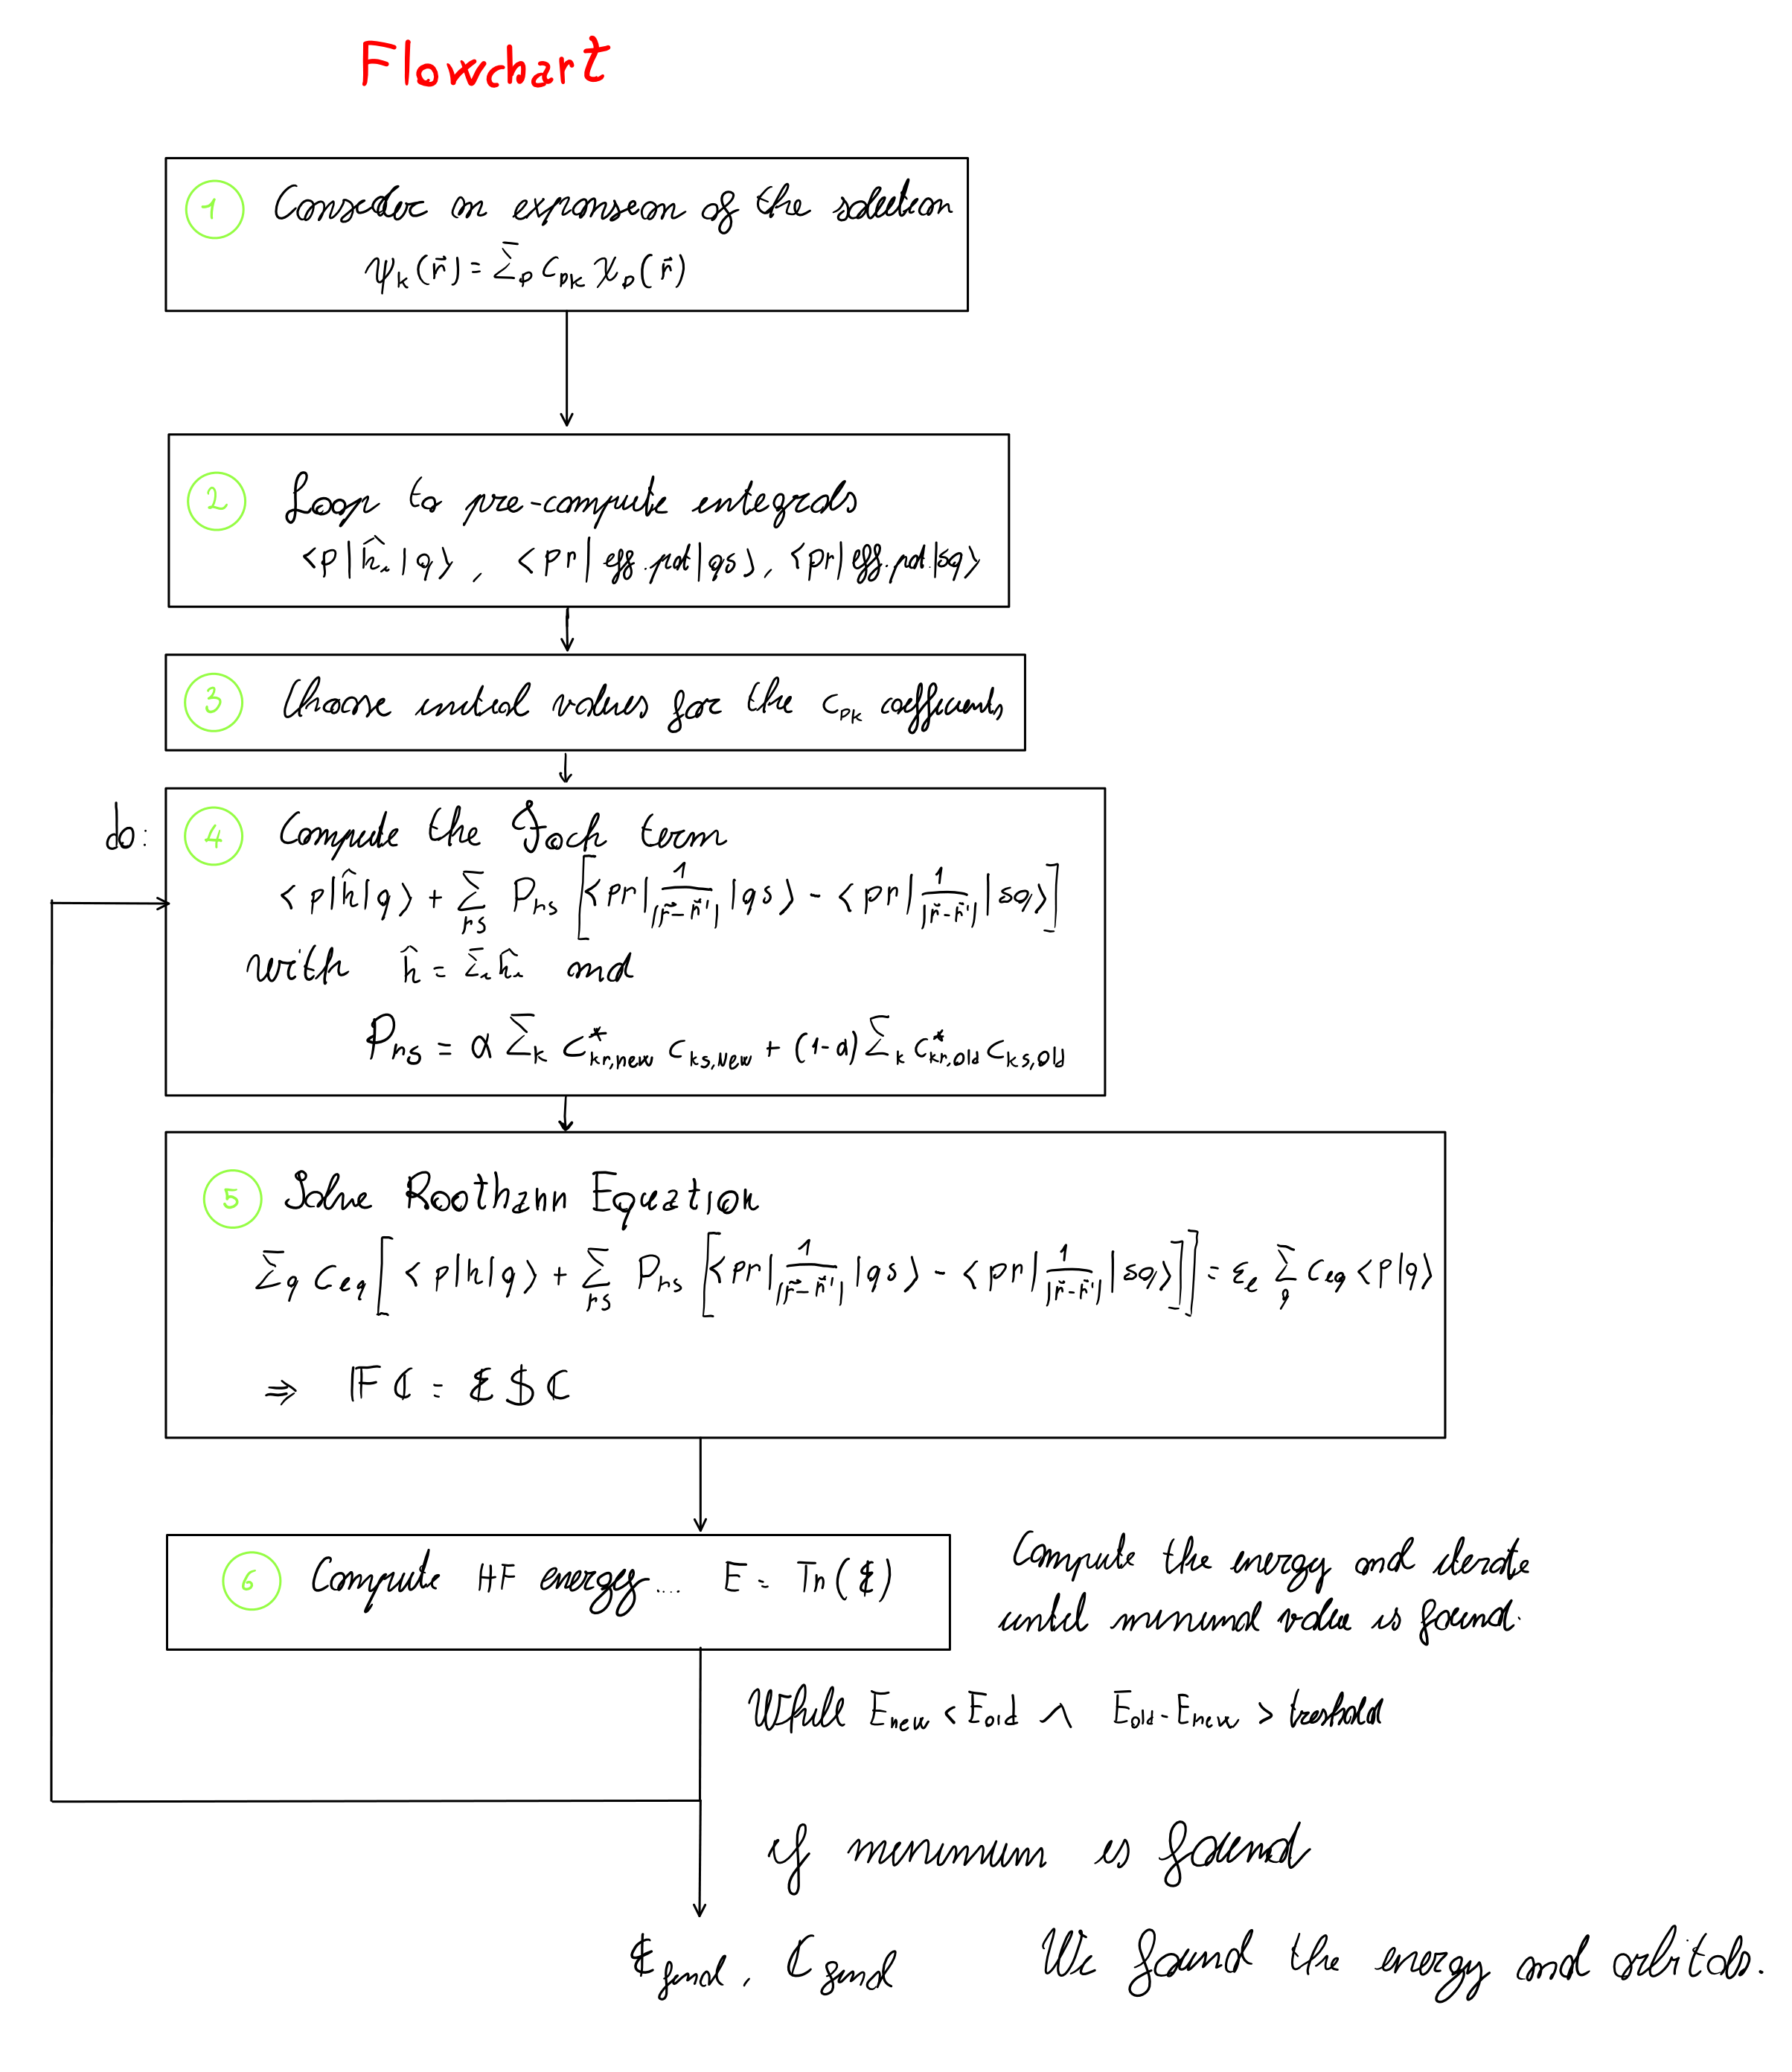 Flowchart
1 Consider an expansion of the solution
ψ_k(r⃗) = Σ_p c_pk χ_p(r⃗)
2 Loop to pre-compute integrals
<p|ĥ_i|q>, <pr|eff.pot|qs>, <pr|eff.pot.|sq>
3 Choose initial values for the c_pk coefficients
do:
4 Compute the Fock term
<p|ĥ|q> + Σ_rs P_rs [<pr| 1/|r⃗-r⃗'| |qs> - <pr| 1/|r⃗-r⃗'| |sq>]
with ĥ = Σ_i ĥ_i and
P_rs = α Σ_k c*_kr,new c_ks,New + (1-α) Σ_k c*_kr,old c_ks,old
5 Solve Roothann Equation
Σ_q c_eq [<p|h|q> + Σ_rs P_rs [<pr| 1/|r⃗-r⃗'| |qs> - <pr| 1/|r⃗-r⃗'| |sq>]] = ε_e Σ_q c_eq <p|q>
⇒ 𝔽ℂ = 𝔼𝕊ℂ
6 Compute HF energy... E = Tr(𝔼)
Compute the energy and iterate
until minimal value is found.
While E_new < E_old ∧ E_old - E_new > treshold
if minimum is found
𝔼_final, ℂ_final
We found the energy and orbitals.